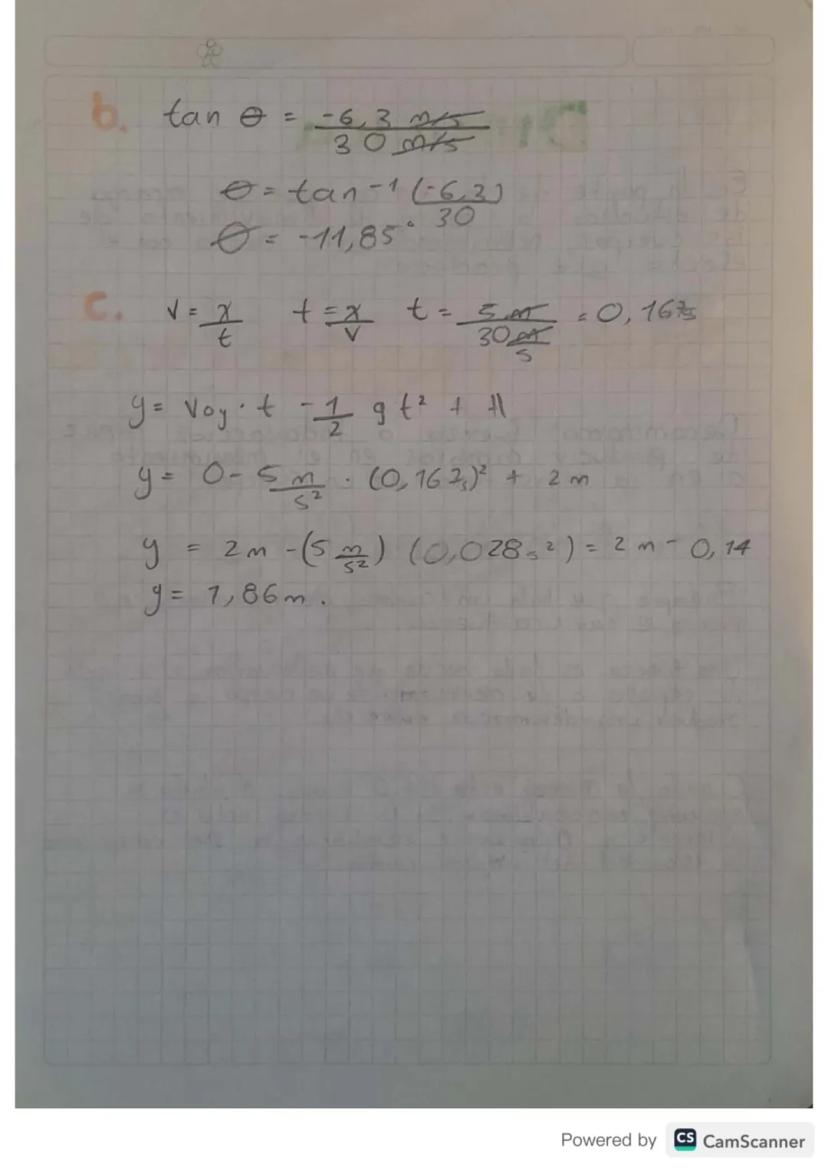 b. tan θ = -6,3 m/s / 30 m/s
θ = tan-1 (-6,3) / 30
θ = -11,85°
c. V = x/t t = x/v t = 5 m / 30 m/s = 0,167s
y = Voy · t - 1/2 g t² + H
y = 0 - 5 m/s² · (0,167s)² + 2 m
y = 2 m - (5 m/s²) (0,028 s²) = 2 m - 0,14
y = 1,86 m.
Powered by CS CamScanner